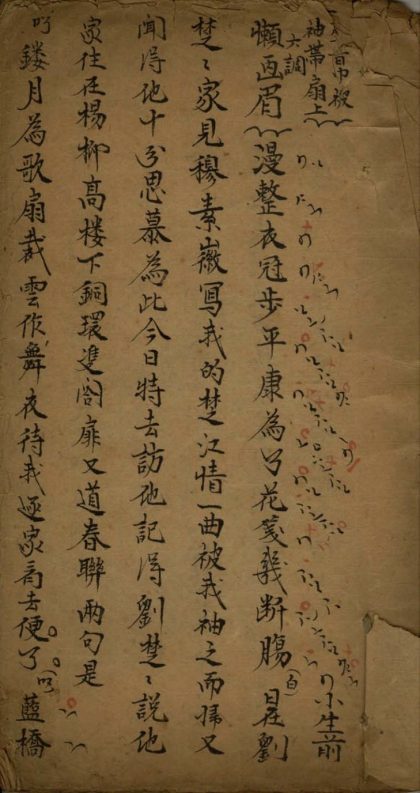 首巾
袖帶扇上
六調
懶画眉 漫整衣冠步平康為花箋幾断腸 白 小生前日在劉
楚〻家見穆素徽寫我的楚江情一曲被我袖之而歸又
聞得他十分思慕為此今日特去訪他記得劉楚〻說他
家住在楊柳高樓下銅環進閤扉又道春聯兩句是
鏤月為歌扇裁雲作舞衣待我逐家看去便了 藍橋